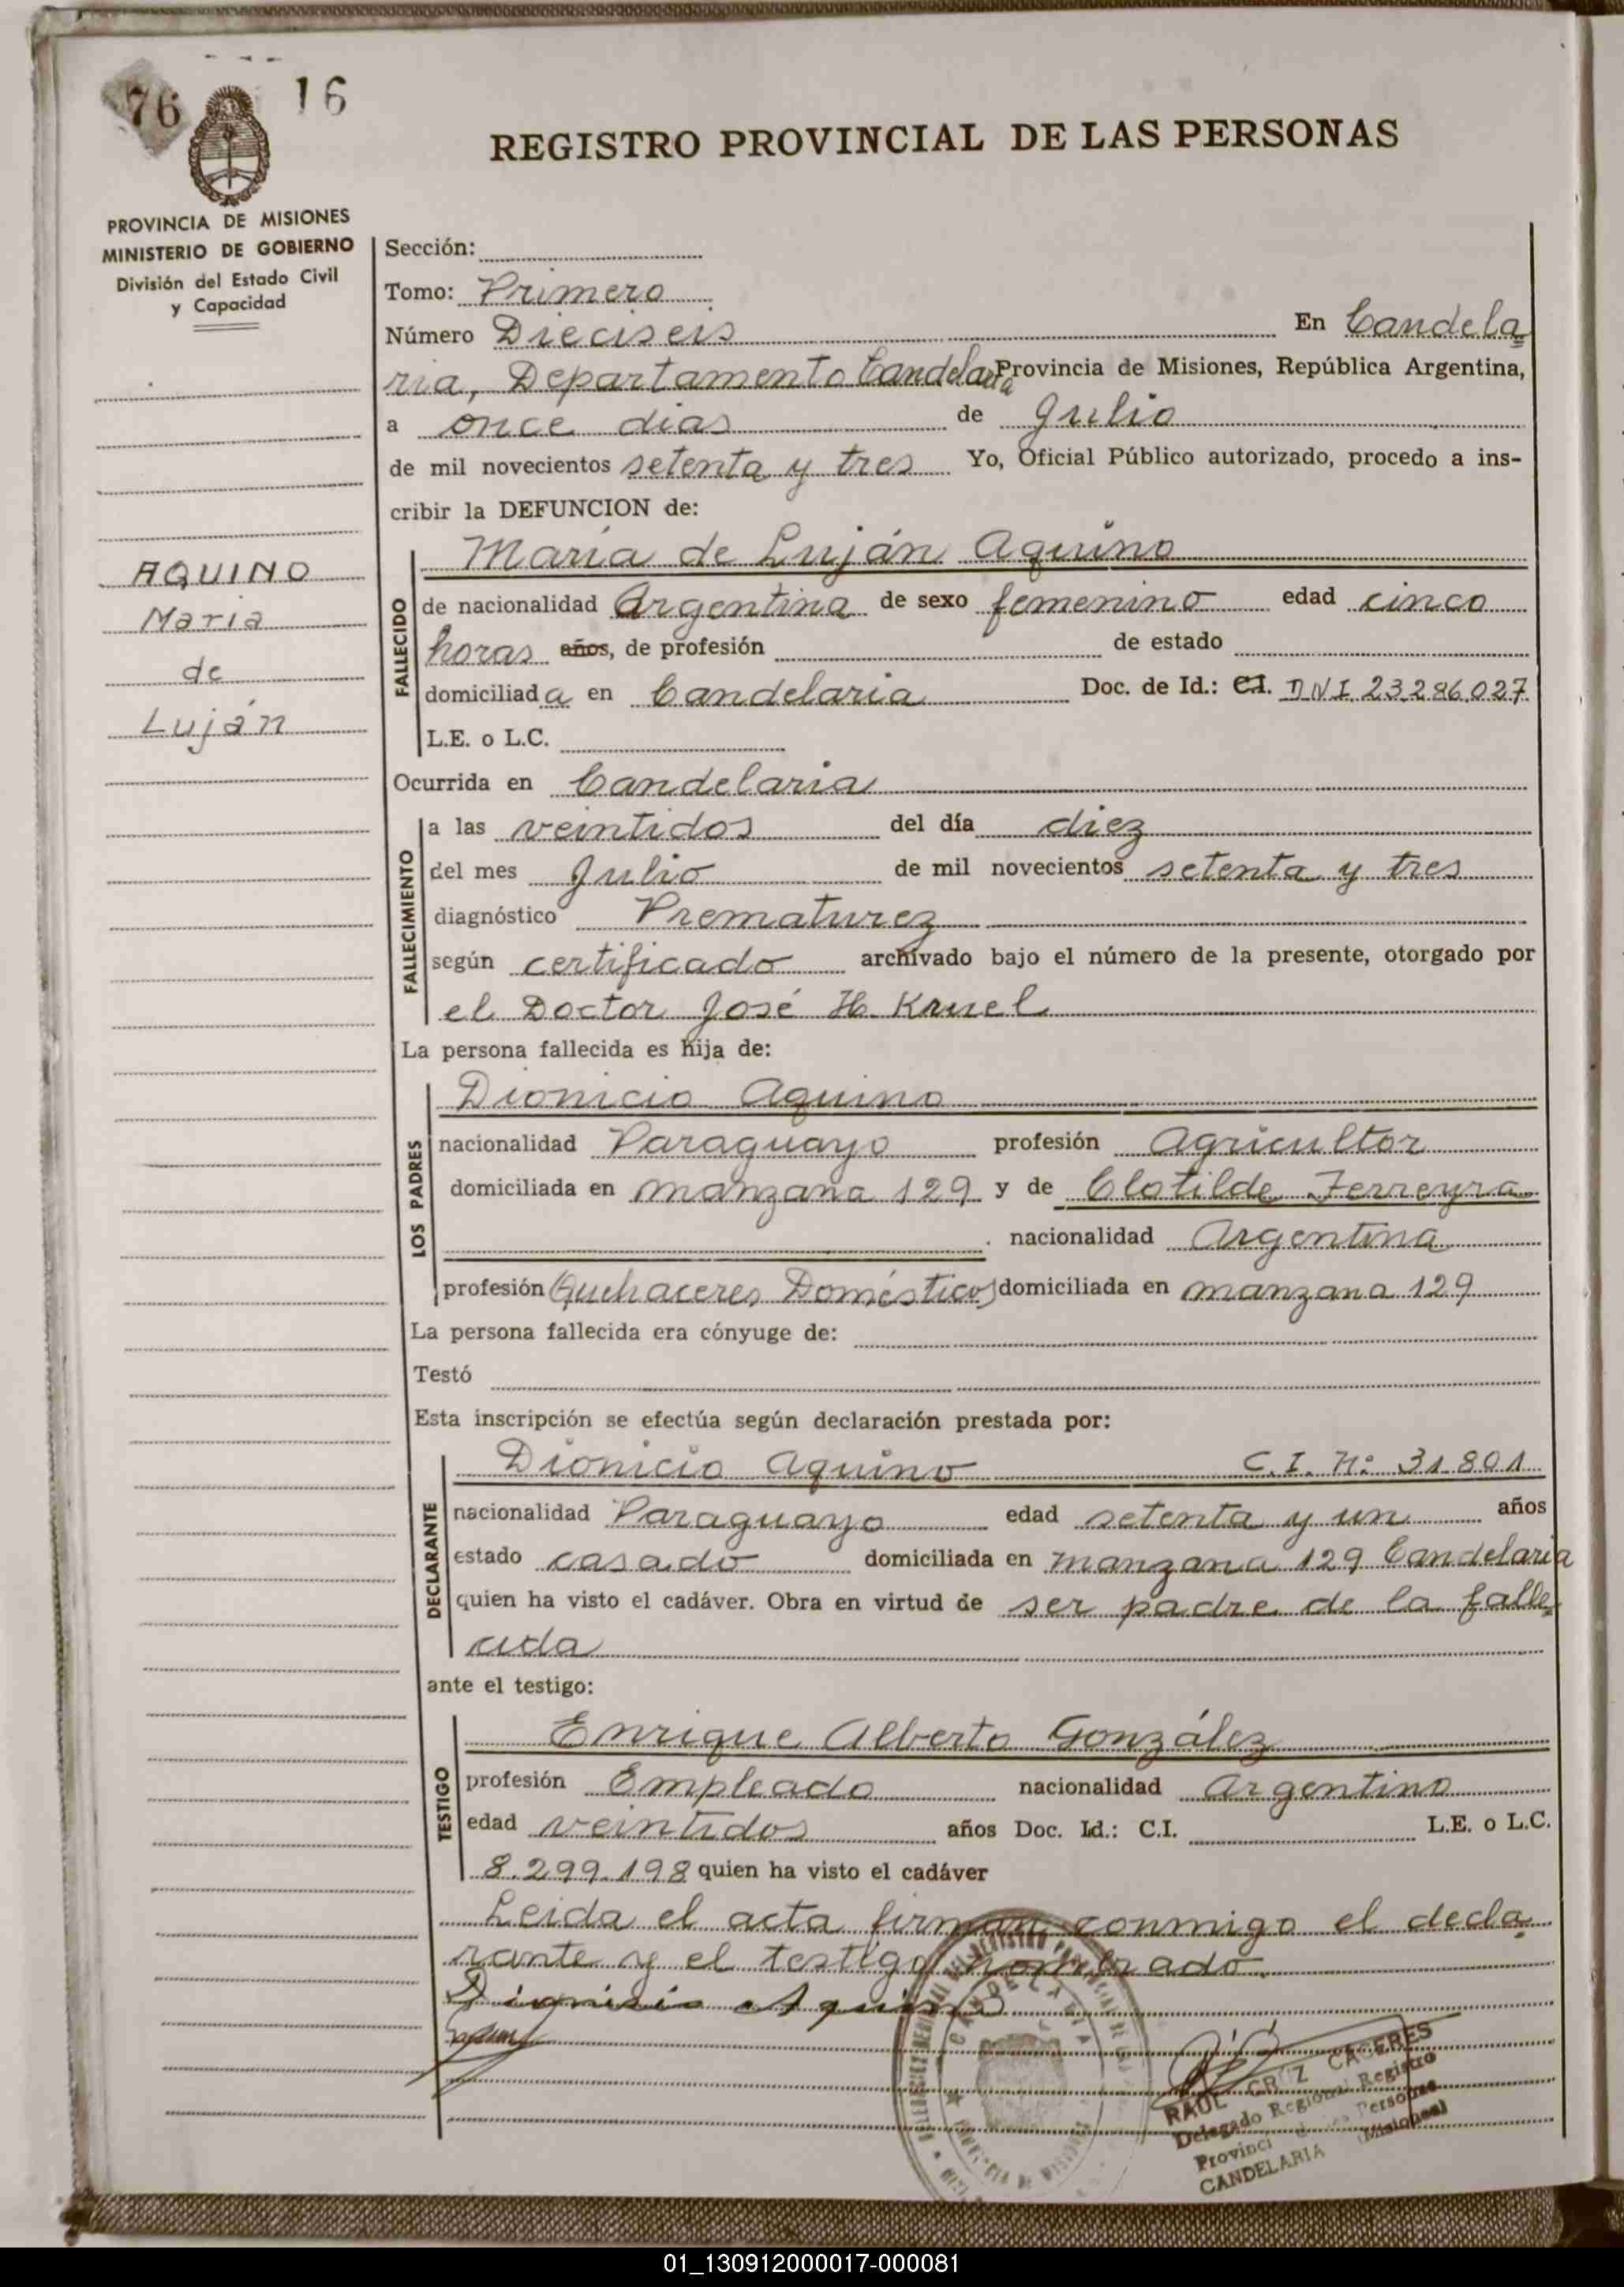 76
16
REGISTRO PROVINCIAL DE LAS PERSONAS
PROVINCIA DE MISIONES
MINISTERIO DE GOBIERNO
División del Estado Civil
y Capacidad
AQUINO
Maria
de
Luján
Sección:
Tomo: Primero
Número Dieciseis En Candela
ria, Departamento Candelaria Provincia de Misiones, República Argentina,
a once dias de Julio
de mil novecientos setenta y tres Yo, Oficial Público autorizado, procedo a ins-
cribir la DEFUNCION de:
FALLECIDO
María de Luján Aquino
de nacionalidad Argentina de sexo femenino edad cinco
horas años, de profesión de estado
domiciliada en Candelaria Doc. de Id.: C.I. DNI. 23.286.027
L.E. o L.C.
Ocurrida en Candelaria
FALLECIMIENTO
a las veintidos del día diez
del mes Julio de mil novecientos setenta y tres
diagnóstico Prematurez
según certificado archivado bajo el número de la presente, otorgado por
el Doctor José H. Kruel
La persona fallecida es hija de:
LOS PADRES
Dionicio Aquino
nacionalidad Paraguayo profesión Agricultor
domiciliada en manzana 129 y de Clotilde Ferreyra
nacionalidad Argentina
profesión Quehaceres Domésticos domiciliada en manzana 129
La persona fallecida era cónyuge de:
Testó
Esta inscripción se efectúa según declaración prestada por:
DECLARANTE
Dionicio Aquino C.I. Nº 31.801
nacionalidad Paraguayo edad setenta y un años
estado casado domiciliada en manzana 129 Candelaria
quien ha visto el cadáver. Obra en virtud de ser padre de la falle
cida
ante el testigo:
TESTIGO
Enrique Alberto González
profesión Empleado nacionalidad Argentino
edad veintidos años Doc. Id.: C.I. L.E. o L.C.
8.299.198 quien ha visto el cadáver
Leida el acta firman conmigo el decla
rante y el testigo nombrado.
Dionisio Aquino
CANDELARIA
RAUL CRUZ CACERES
Delegado Regional Registro
Personas
CANDELARIA (Misiones)
01_130912000017-000081